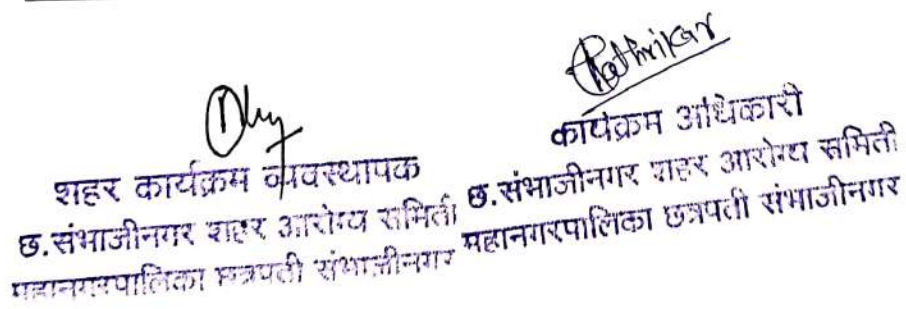 शहर कार्यक्रम व्यवस्थापक
छ.संभाजीनगर शहर आरोग्य समिती
महानगरपालिका छत्रपती संभाजीनगर
कार्यक्रम अधिकारी
छ.संभाजीनगर शहर आरोग्य समिती
महानगरपालिका छत्रपती संभाजीनगर